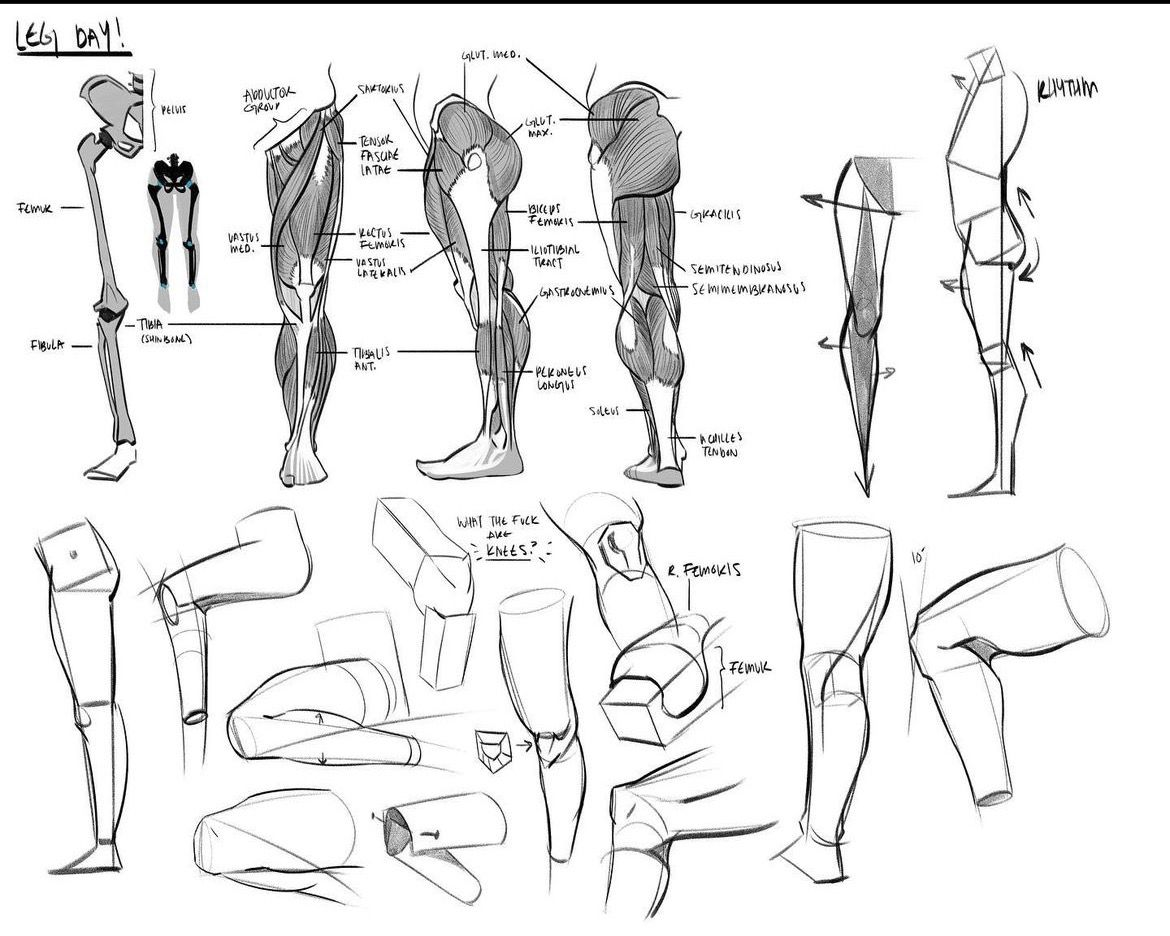 LEG DAY!
PELVIS
FEMUR
TIBIA
(SHINBONE)
FIBULA
ADDUCTOR
GROUP
SARTORIUS
TENSOR
FASCIAE
LATAE
VASTUS
MED.
RECTUS
FEMORIS
VASTUS
LATERALIS
TIBIALIS
ANT.
GLUT. MED.
GLUT.
MAX.
BICEPS
FEMORIS
ILIOTIBIAL
TRACT
GASTROCNEMIUS
PERONEUS
LONGUS
GRACILIS
SEMITENDINOSUS
SEMIMEMBRANOSUS
SOLEUS
ACHILLES
TENDON
RHYTHM
WHAT THE FUCK
ARE
KNEES?
R. FEMORIS
FEMUR
10°